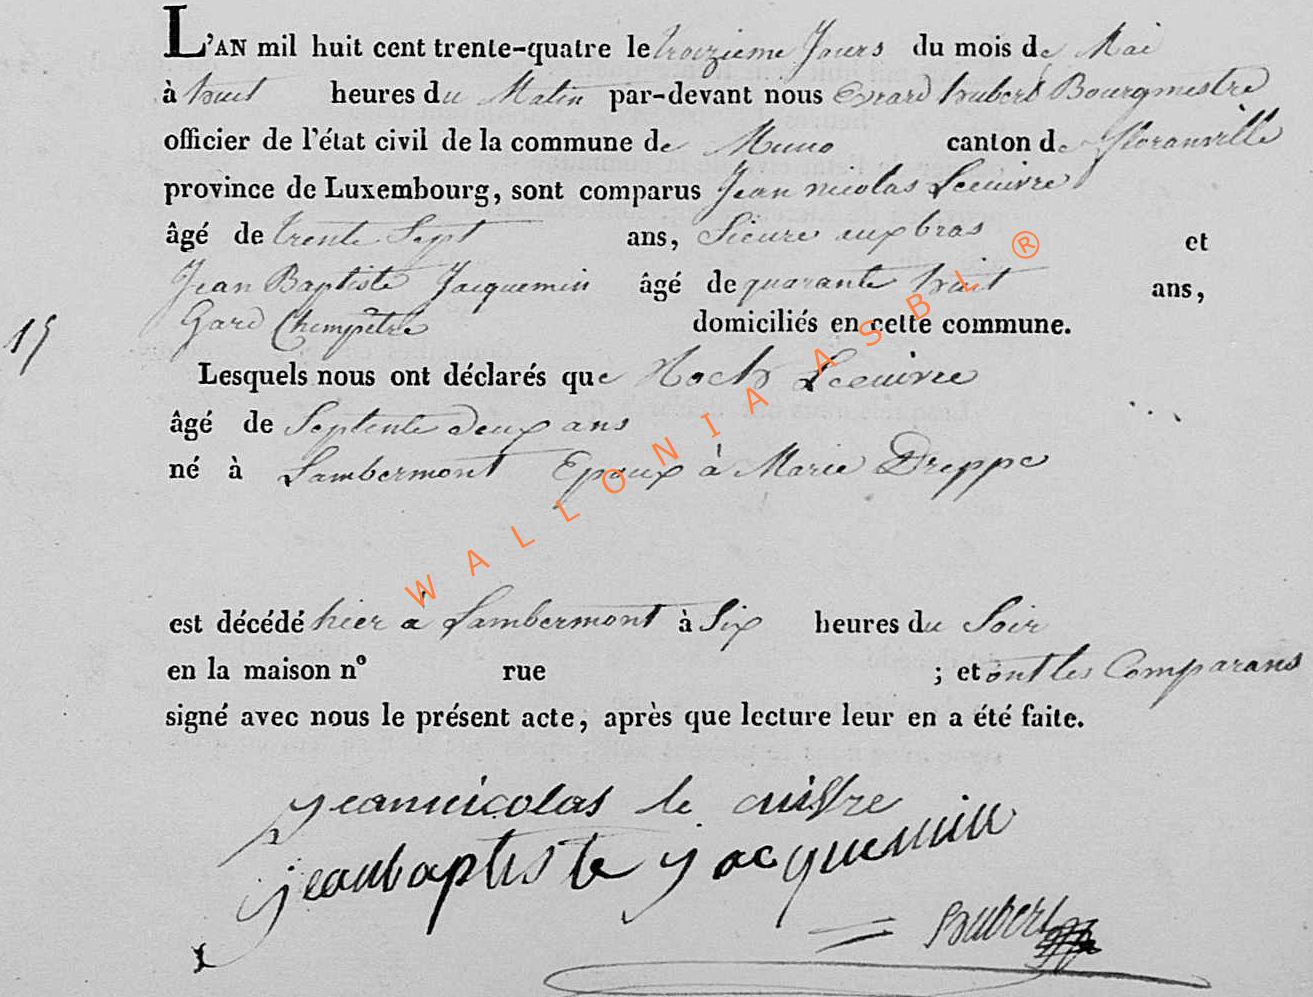 L'AN mil huit cent trente-quatre le troizieme Jours du mois de Mai
à huit heures du Matin par-devant nous Evrard hubert Bourgmestre
officier de l'état civil de la commune de Muno canton de floranville
province de Luxembourg, sont comparus Jean nicolas Lecuivre
âgé de trente Sept ans, Sieure aux bras et
Jean Baptiste Jacquemin âgé de quarante huit ans,
Gard Champêtre domiciliés en cette commune.
15
Lesquels nous ont déclarés que Lecuivre
âgé de Septente deux ans
né à Lambermont Epoux à Marie Dreppe
WALLONIA ASBL ®
est décédé hier a Lambermont à Six heures du Soir
en la maison nº rue ; et ont les Comparans
signé avec nous le présent acte, après que lecture leur en a été faite.
jeannicolas le cuivre
jeanbaptiste jacquemin
hubert